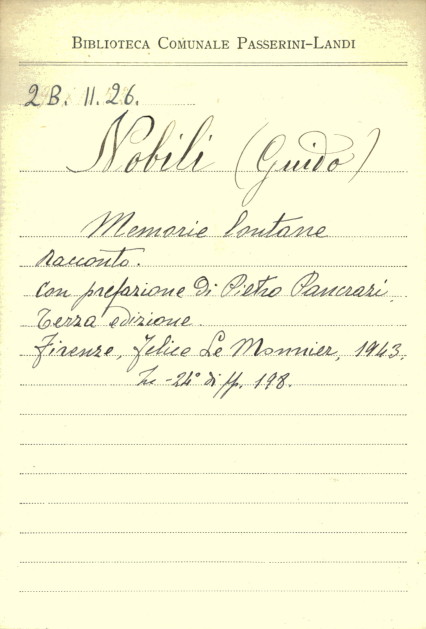 BIBLIOTECA COMUNALE PASSERINI-LANDI
2B. II. 26.
Nobili (Guido)
Memorie lontane
racconto.
con prefazione di Pietro Pancrazi
Terza edizione.
Firenze, Felice Le Monnier, 1943.
In-24° di pp. 198.